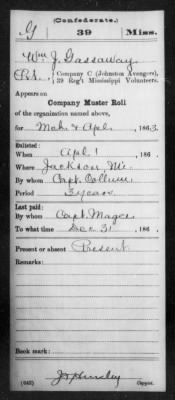 (Confederate.)
G 39 Miss.
Wm J. Gassaway
Company C (Johnston Avengers),
39 Reg't Mississippi Volunteers.
Appears on
Company Muster Roll
of the organization named above,
for Mch & Apl, 1863.
Enlisted:
When Apl 1, 186 .
Where Jackson Mi
By whom Capt. Collum
Period 3 years
Last paid:
By whom Capt. Magee
To what time Dec 31, 186 .
Present or absent Present
Remarks:
Book mark:
(642) Copyist.